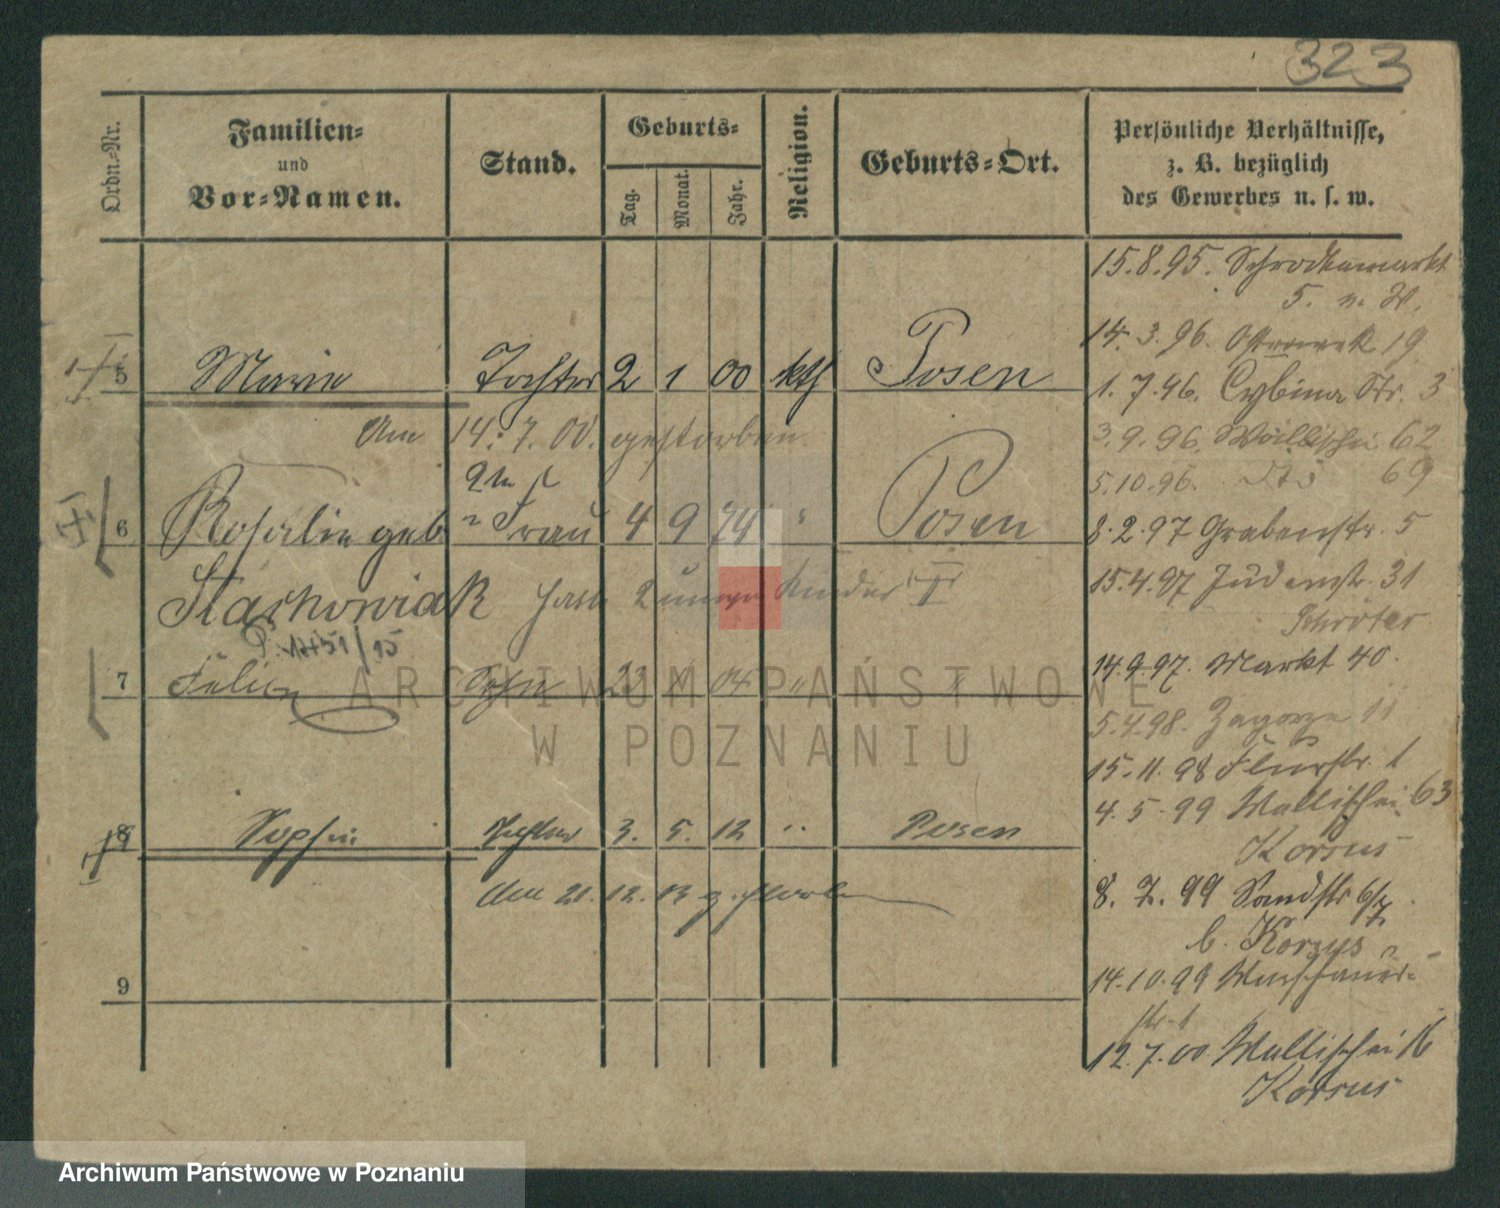 323
Ordn.-Nr.
Familien-
und
Vor-Namen.
Stand.
Geburts-
Tag.
Monat.
Jahr.
Religion.
Geburts-Ort.
Persönliche Verhältnisse,
z. B. bezüglich
des Gewerbes u. s. w.
15.8.95. Schrodkamarkt
5. n. W.
14.3.96. 19
5 Marie Tochter 2 1 00 kth Posen
1.7.96. Cybina Str. 3
Am 14.7.00. gestorben.
3.9.96. Wallischei 62
5.10.96. 69
6 Rosalie geb Frau 4 9 74 " Posen
8.2.97 Grabenstr. 5
Stachowiak Kinder
15.4.97 Judenstr. 31
Schröter
14.9.97. Markt 40.
7 Felix Sohn 23 04 "
5.4.98. Zagorze 11
15.11.98 Flurstr. 1
4.5.99 Wallischei 63
8 Sophie Tochter 3. 5. 12 " Posen
Korsus
Am 20.12.13 gestorben
8.7.99 Sandstr 6/7
b. Korzus
14.10.99 Warschauer-
9
str. 1
12.7.00. Wallischei 16
Korsus
ARCHIWUM PAŃSTWOWE
W POZNANIU
Archiwum Państwowe w Poznaniu